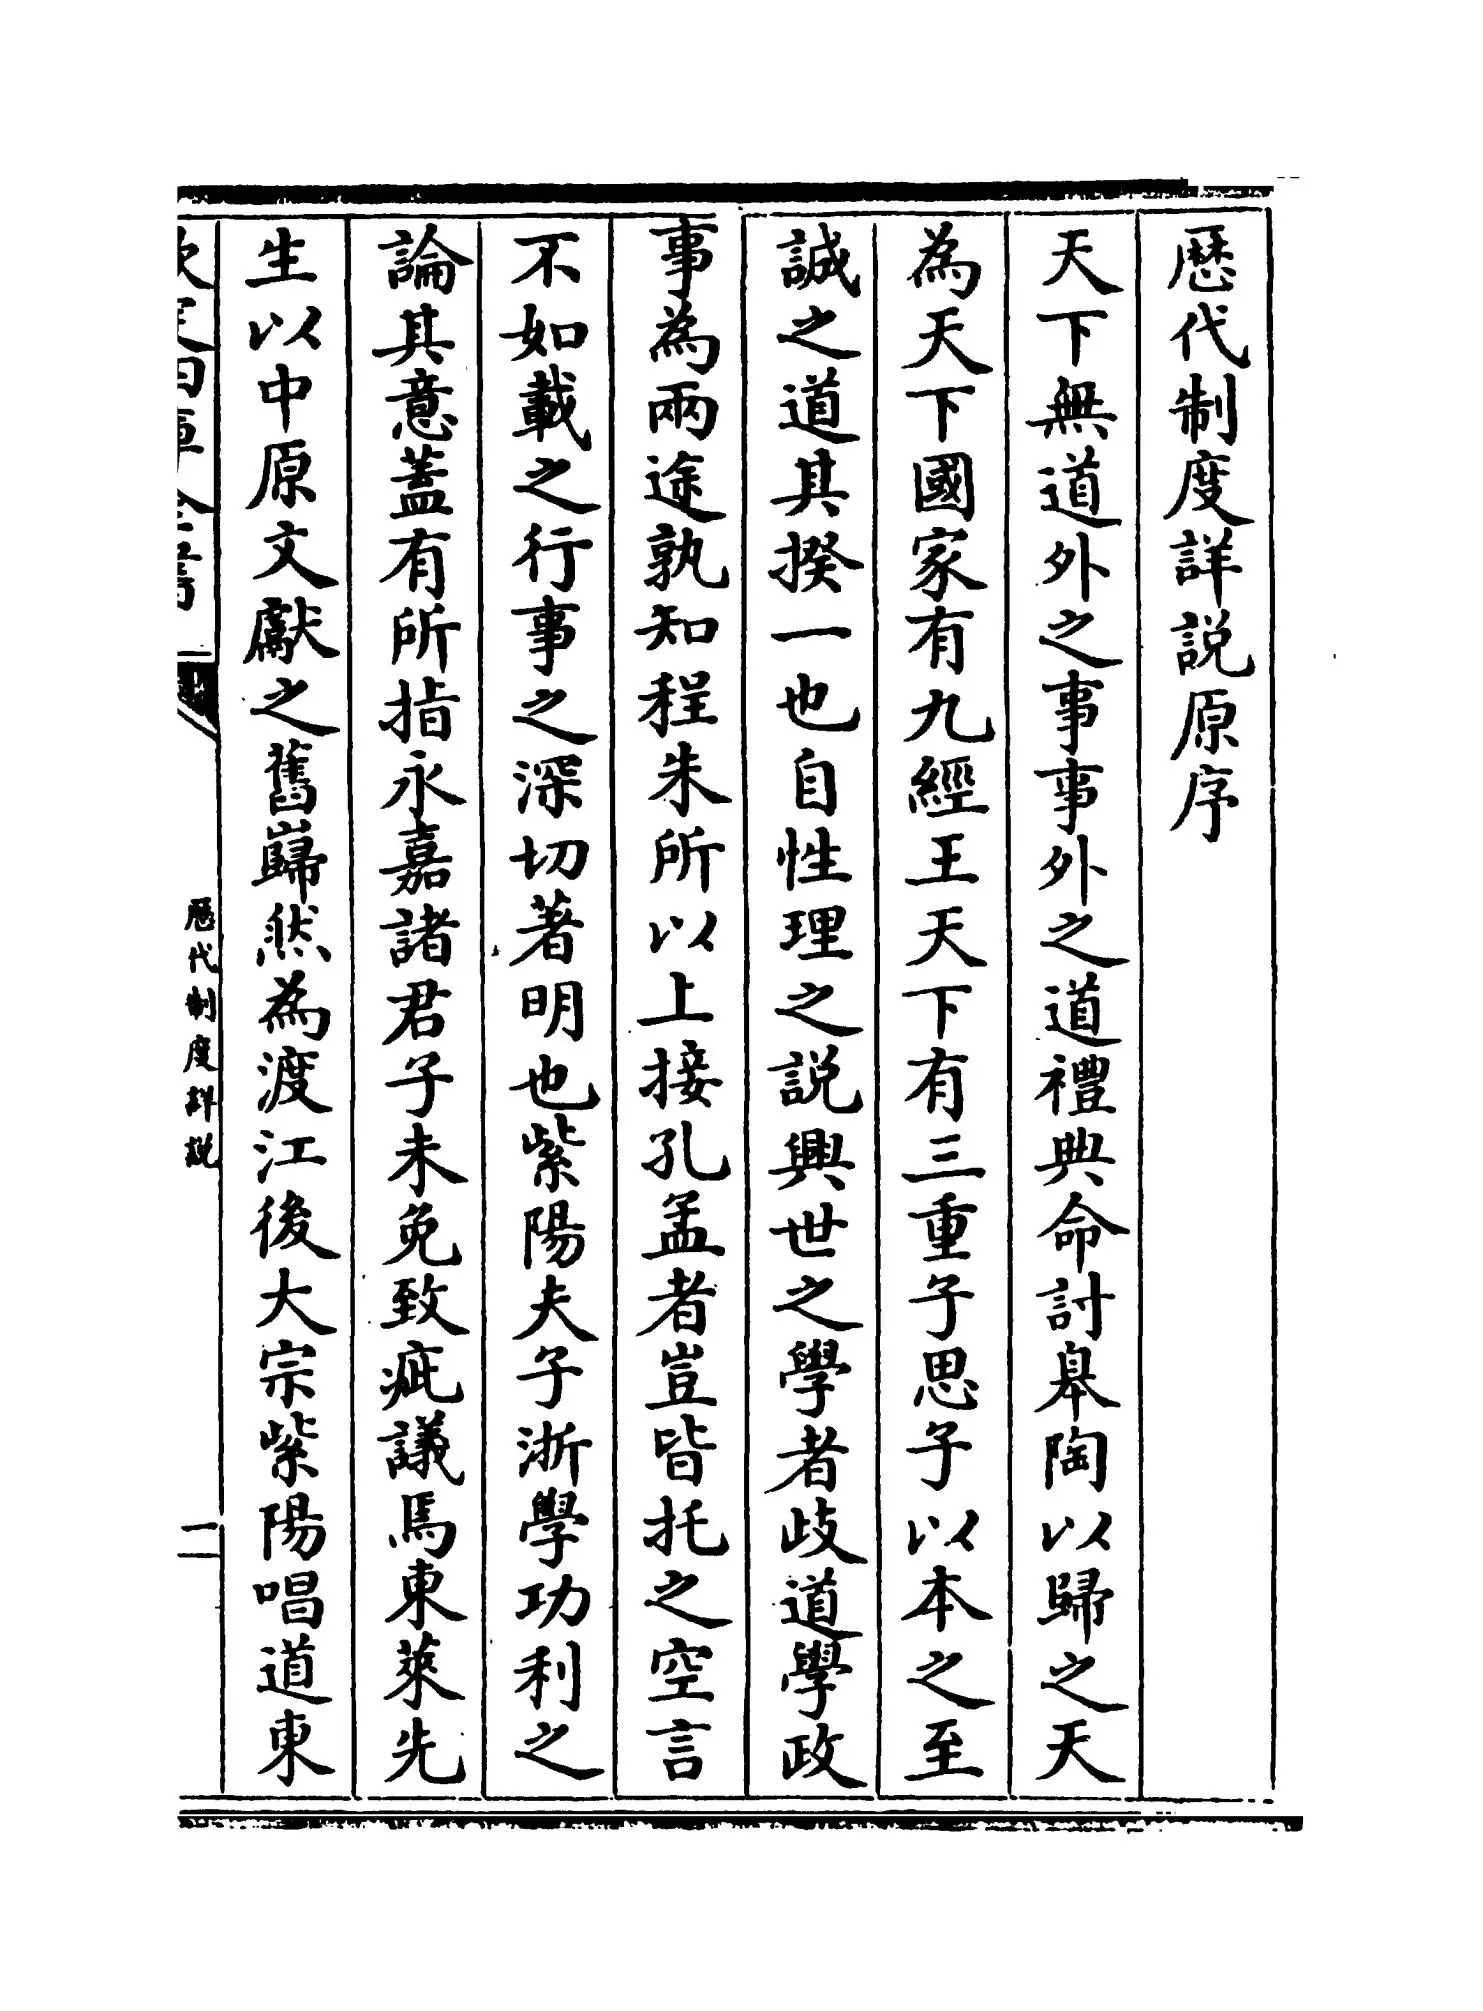 歴代制度詳説原序
天下無道外之事事外之道禮典命討臯陶以歸之天
為天下國家有九經王天下有三重子思子以本之至
誠之道其揆一也自性理之説興世之學者歧道學政
事為兩途孰知程朱所以上接孔孟者豈皆托之空言
不如載之行事之深切著明也紫陽夫子浙學功利之
論其意蓋有所指永嘉諸君子未免致疵議焉東萊先
生以中原文獻之舊巋然為渡江後大宗紫陽唱道東
欽定四庫全書
歴代制度詳説
一